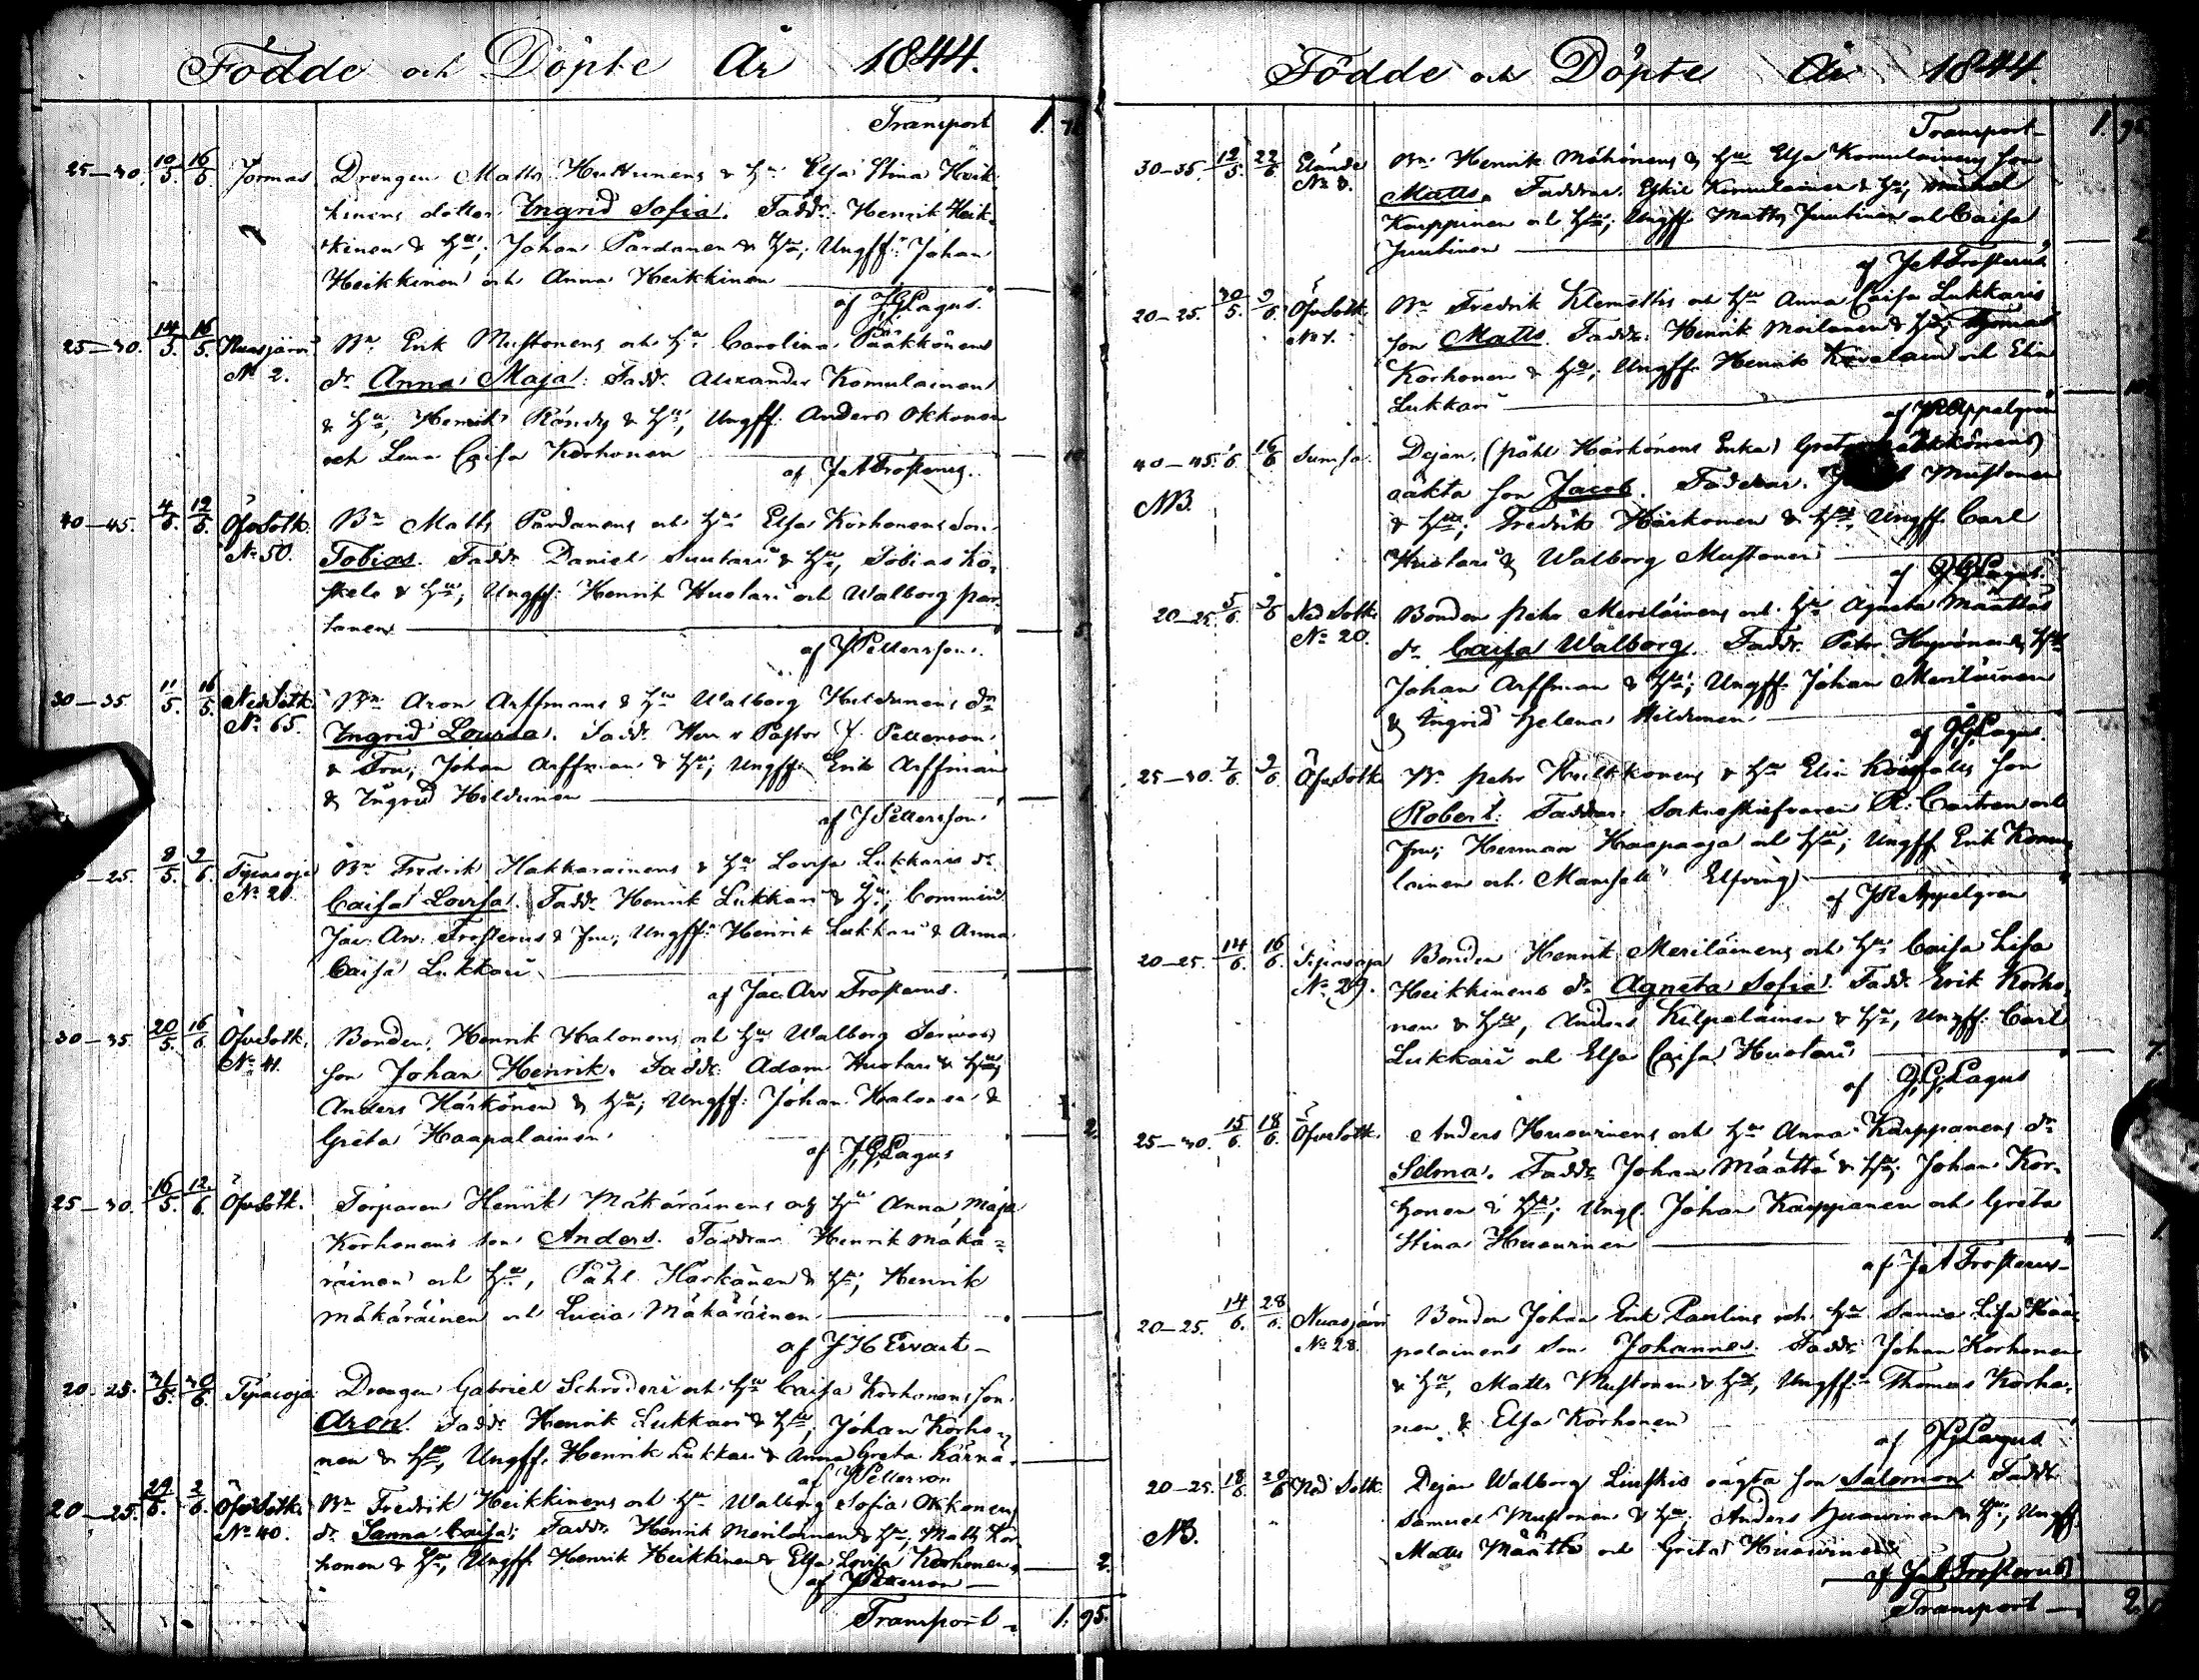 Födde och Döpte År 1844.
Transport 1.
25–30. 10/5. 16/5. Jormas Drengen Matts Huttunens & Hu Elsa Stina Heik-
kinens dotter Ingrid Sofia. Faddr: Henrik Heik-
kinen & Hu; Johan Pardanen & Hu; Ungff: Johan
Heikkinen och Anna Heikkinen
af J.G.Lagus.
25–30. 14/5. 16/5. Nuasjärvi Bn Erik Mustonens och Hu Carolina Pääkkönens
No 2. dr Anna Maja. Fadd. Alexander Komulainen
& Hu; Henrik & Hu; Ungff. Anders Okkonen
och Lena Caisa Korhonen
af J A Frosterus.
40–45. 4/5. 12/5. Öfvesotk. Bn Matts Pardanens och Hu Elsa Korhonens Son
No 50. Tobias. Fadd. Daniel Suutari & Hu, Tobias Ko-
skelo & Hu; Ungff: Henrik Huotari och Walborg par-
danen
af J Pettersson.
30–35. 11/5. 16/5. Ned Sotk. Bn Aron Arffmans & Hu Walborg Hildunens dr
No 65. Ingrid Lovisa. Fadd. Herr v Pastor J. Petterson
& Fru; Johan Arffman & Hu; Ungff. Erik Arffman
& Ingrid Hildunen
af J Pettersson.
25. 8/5. 2/6. Tipasoja Bn Fredrik Hakkarainens & Hu Lovisa Lukkaris dr
No 20. Caisa Lovisa. Fadd. Henrik Lukkari & Hu; Commin:
Jac. Arv. Frosterus & Fru; Ungff: Henrik Lukkari & Anna
Caisa Lukkari
af Jac. Arv Frosterus.
30–35. 20/5. 16/6. Öfvesotk. Bonden Henrik Halonens och Hu Walborg
No 41. Son Johan Henrik. Fadd. Adam Huotari & Hu;
Anders Härkönen & Hu; Ungff: Johan Halonen &
Greta Haapalainen.
af J.G.Lagus 2.
25–30. 16/5. 12/6. Öfvesotk. Torparen Henrik Mäkäräinens och Hu Anna Maja
Korhonens Son Anders. Faddrar Henrik Mäkä-
räinen och Hu, Påhl Härkönen & Hu; Henrik
Mäkäräinen och Lucia Mäkäräinen
af J H Ervast
20–25. 31/5. 30/6. Tipasoja Drengen Gabriel Schröders och Hu Caisa Korhonens son
Aron. Fadd. Henrik Lukkari & Hu, Johan Korho-
nen & Hu, Ungff. Henrik Lukkari & Anna Greta Kärnä.
af J Petterson
20–25. 2/6. Öfvesotk. Bn Fredrik Heikkinens och Hu Walborg Sofia Okkonens
No 40. dr Sanna Caisa; Fadd. Henrik Meriläinen & Hu; Matts Kor-
honen & Hu, Ungff. Henrik Heikkinen & Elsa Lovisa Korhonen. 2.
af J Petterson
Transport 1. 95.
Födde och Döpte År 1844.
Transport 1. 95
30–35. 12/5. 22/6. Bn Henrik Möhönens & Hu Elsa Komulainens Son
No 8. Matts. Faddrar. Eskil Komulainen & Hu; Michel
Karppinen och Hu; Ungff Matts Juntinen och Caisa
Juntinen
af J A Frosterus
20–25. 30/5. 9/6. Öfvesotk. Bn Fredrik Klemettis och Hu Anna Caisa Lukkaris
Son Matts. Faddr: Henrik Moilanen & Hu; Thomas
Korhonen & Hu; Ungff. Henrik och Elin
Lukkari
af J R Appelgren
40–45. 16/6 Sumsa. Dejan. (påhl Härkönens Enka) Greta
NB. oäkta Son Jacob. Faddrar. Mustonen
& Hu; Fredrik Härkönen & Hu; Ungff. Carl
Huotari & Walborg Mustonen
af J.G.Lagus.
20–25 5/6. 9/6 Ned Sotk. Bonden Petr Meriläinens och Hu Agneta Määttäs
No 20. dr Caisa Walborg. Faddr. Petr & Hu
Johan Arffman & Hu; Ungff. Johan Meriläinen
& Ingrid Helena Hildunen
af J.G.Lagus.
25–30. 7/6. 9/6. Öfvesotk. Bn petr Kilkkonens & Hu Elin Son
Robert. Faddrar. Sockneskrifvaren R. Castren och
Fru; Herman Haapaoja och Hu; Ungff Erik Komu-
lainen och Mamsell Elfving
af J R Appelgren
20–25. 14/6. 16/6. Tipasoja Bonden Henrik Meriläinens och Hu Caisa Lisa
No 29. Heikkinens dr Agneta Sofia. Fadd. Erik Korho-
nen & Hu, Anders Kilpeläinen & Hu, Ungff. Carl
Lukkari och Elsa Caisa Huotari 7.
af J.G.Lagus
25–30. 15/6. 18/6. Öfvesotk. Anders Huovinens och Hu Anna Karppanens dr
Selma. Faddr. Johan Määttä & Hu; Johan Kor-
honen & Hu; Ungf. Johan Karppanen och Greta
Stina Huovinen
af J A Frosterus
20–25. 14/6. 28/6. Nuasjärvi Bonden Johan Erik Paulins och Hu Sanna Lisa Haa-
No 28. palainens Son Johannes. Faddr Johan Korhonen
& Hu, Matts Mustonen & Hu, Ungff. Thomas Korho-
nen & Elsa Korhonen
af J G Lagus
20–25. 18/6 Ned Sotk. Dejan Walborg Liuskis oägta Son Salomon. Faddr
NB. Samuel Mustonen & Hu; Anders Huovinen & Hu, Ungff.
Matts Määttä och Greta Huovinen
af J A Frosterus
Transport 2.